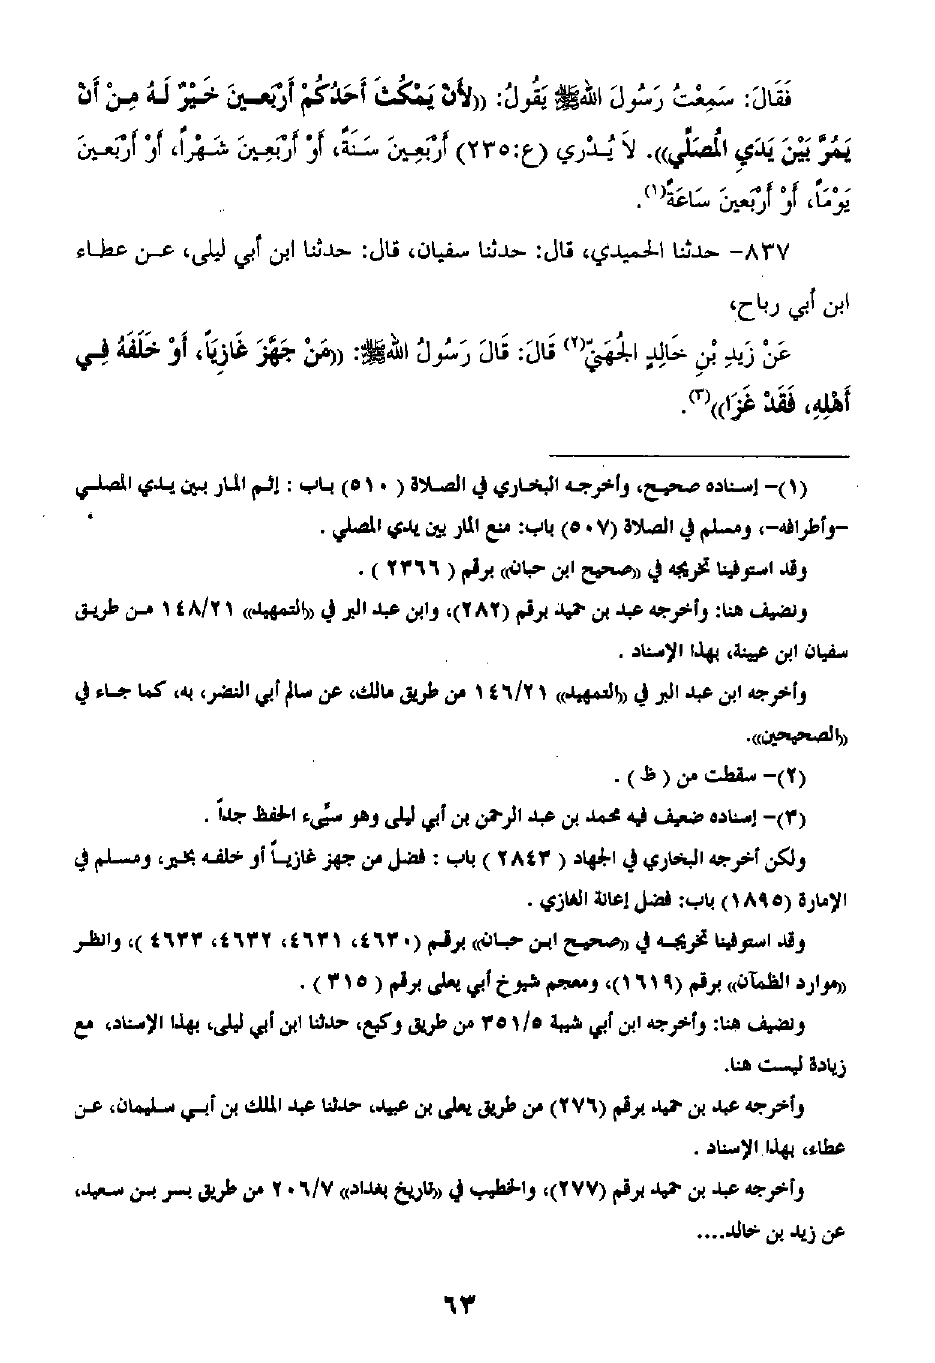 فَقَالَ: سَمِعْتُ رَسُولَ اللهِ ﷺ يَقُولُ: ((لأَنْ يَمْكُثَ أَحَدُكُمْ أَرْبَعِينَ خَيْرٌ لَهُ مِنْ أَنْ
يَمُرَّ بَيْنَ يَدَيِ الْمُصَلِّي)). لاَ يُدْرِي (ع:٢٣٥) أَرْبَعِينَ سَنَةً، أَوْ أَرْبَعِينَ شَهْراً، أَوْ أَرْبَعِينَ
يَوْمَاً، أَوْ أَرْبَعِينَ سَاعَةً(١).
٨٣٧- حدثنا الحميدي، قال: حدثنا سفيان، قال: حدثنا ابن أبي ليلى، عن عطاء
ابن أبي رباح،
عَنْ زَيدِ بْنِ خَالِدٍ الجُهَنِيِّ(٢) قَالَ: قَالَ رَسُولُ اللهِ ﷺ: ((مَنْ جَهَّزَ غَازِيَاً، أَوْ خَلَفَهُ فِي
أَهْلِهِ، فَقَدْ غَزَا))(٣).
(١)- إسناده صحيح، وأخرجه البخاري في الصلاة ( ٥١٠) باب : إثم المار بين يدي المصلي
-وأطرافه-، ومسلم في الصلاة (٥٠٧) باب: منع المار بين يدي المصلي .
وقد استوفينا تخريجه في ((صحيح ابن حبان)) برقم ( ٢٣٦٦ ) .
ونضيف هنا: وأخرجه عبد بن حميد برقم (٢٨٢)، وابن عبد البر في ((التمهيد)) ١٤٨/٢١ من طريق
سفيان ابن عيينة، بهذا الإسناد .
وأخرجه ابن عبد البر في ((التمهيد)) ١٤٦/٢١ من طريق مالك، عن سالم أبي النضر، به، كما جاء في
((الصحيحين)).
(٢)- سقطت من ( ظ ) .
(٣)- إسناده ضعيف فيه محمد بن عبد الرحمن بن أبي ليلى وهو سيِّىء الحفظ جداً .
ولكن أخرجه البخاري في الجهاد ( ٢٨٤٣ ) باب : فضل من جهز غازياً أو خلفه بخير، ومسلم في
الإمارة (١٨٩٥) باب: فضل إعانة الغازي .
وقد استوفينا تخريجه في ((صحيح ابن حبان)) برقم (٤٦٣٠، ٤٦٣١، ٤٦٣٢، ٤٦٣٣ )، وانظر
((موارد الظمآن)) برقم (١٦١٩)، ومعجم شيوخ أبي يعلى برقم ( ٣١٥ ) .
ونضيف هنا: وأخرجه ابن أبي شيبة ٣٥١/٥ من طريق وكيع، حدثنا ابن أبي ليلى، بهذا الإسناد، مع
زيادة ليست هنا.
وأخرجه عبد بن حميد برقم (٢٧٦) من طريق يعلى بن عبيد، حدثنا عبد الملك بن أبي سليمان، عن
عطاء، بهذا الإسناد .
وأخرجه عبد بن حميد برقم (٢٧٧)، والخطيب في ((تاريخ بغداد)) ٢٠٦/٧ من طريق بسر بن سعيد،
عن زيد بن خالد....
٦٣